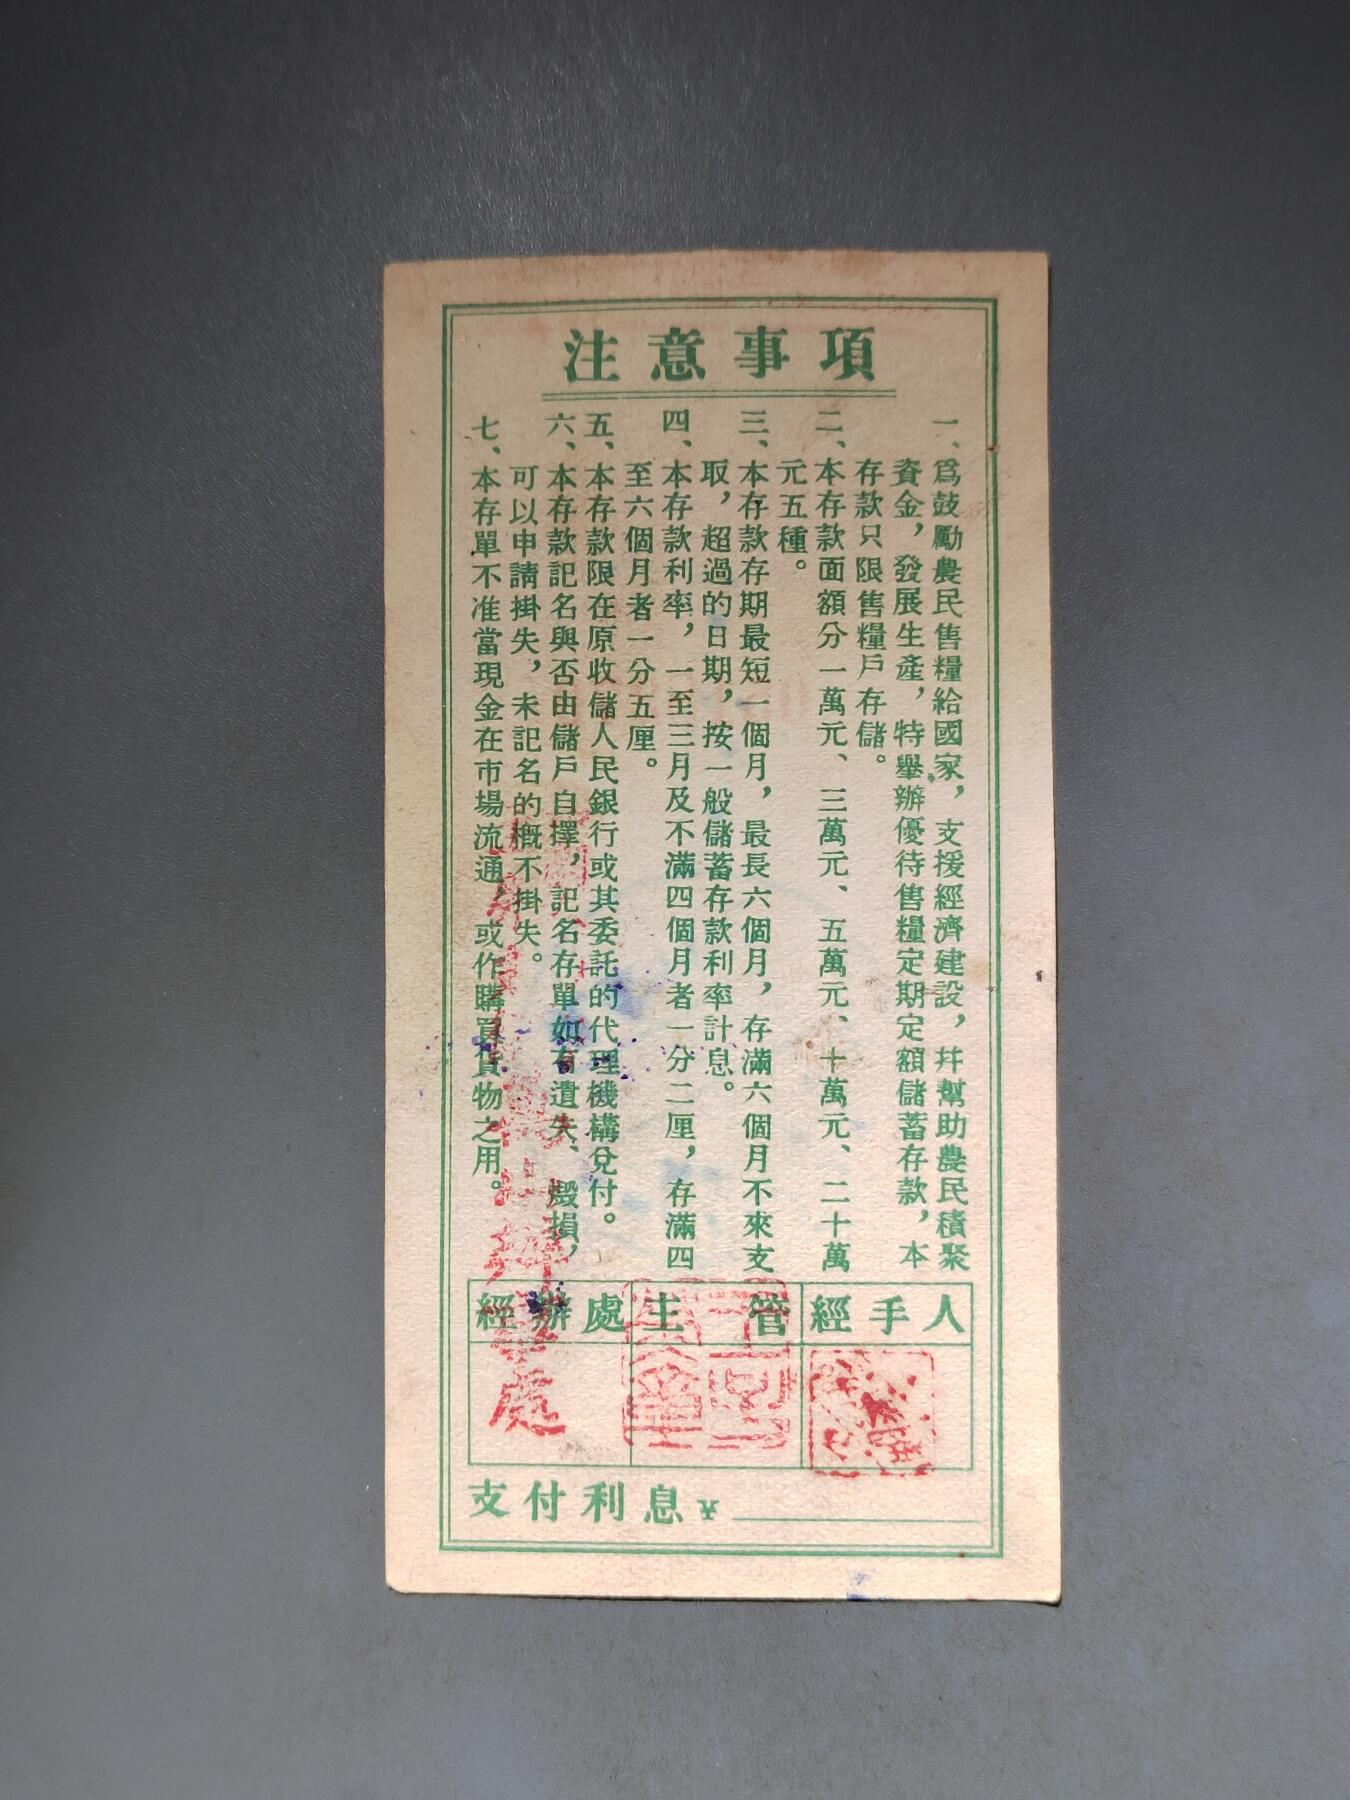 注意事項
一、爲鼓勵農民售糧給國家，支援經濟建設，幷幫助農民積聚
資金，發展生產，特舉辦優待售糧定期定額儲蓄存款，本
存款只限售糧戶存儲。
二、本存款面額分一萬元、三萬元、五萬元、十萬元、二十萬
元五種。
三、本存款存期最短一個月，最長六個月，存滿六個月不來支
取，超過的日期，按一般儲蓄存款利率計息。
四、本存款利率，一至三月及不滿四個月者一分二厘，存滿四
至六個月者一分五厘。
五、本存款限在原收儲人民銀行或其委託的代理機構兌付。
六、本存款記名與否由儲戶自擇，記名存單如有遺失、毀損，
可以申請掛失，未記名的概不掛失。
七、本存單不准當現金在市場流通，或作購買貨物之用。
經辦處 主管 經手人
處
支付利息¥